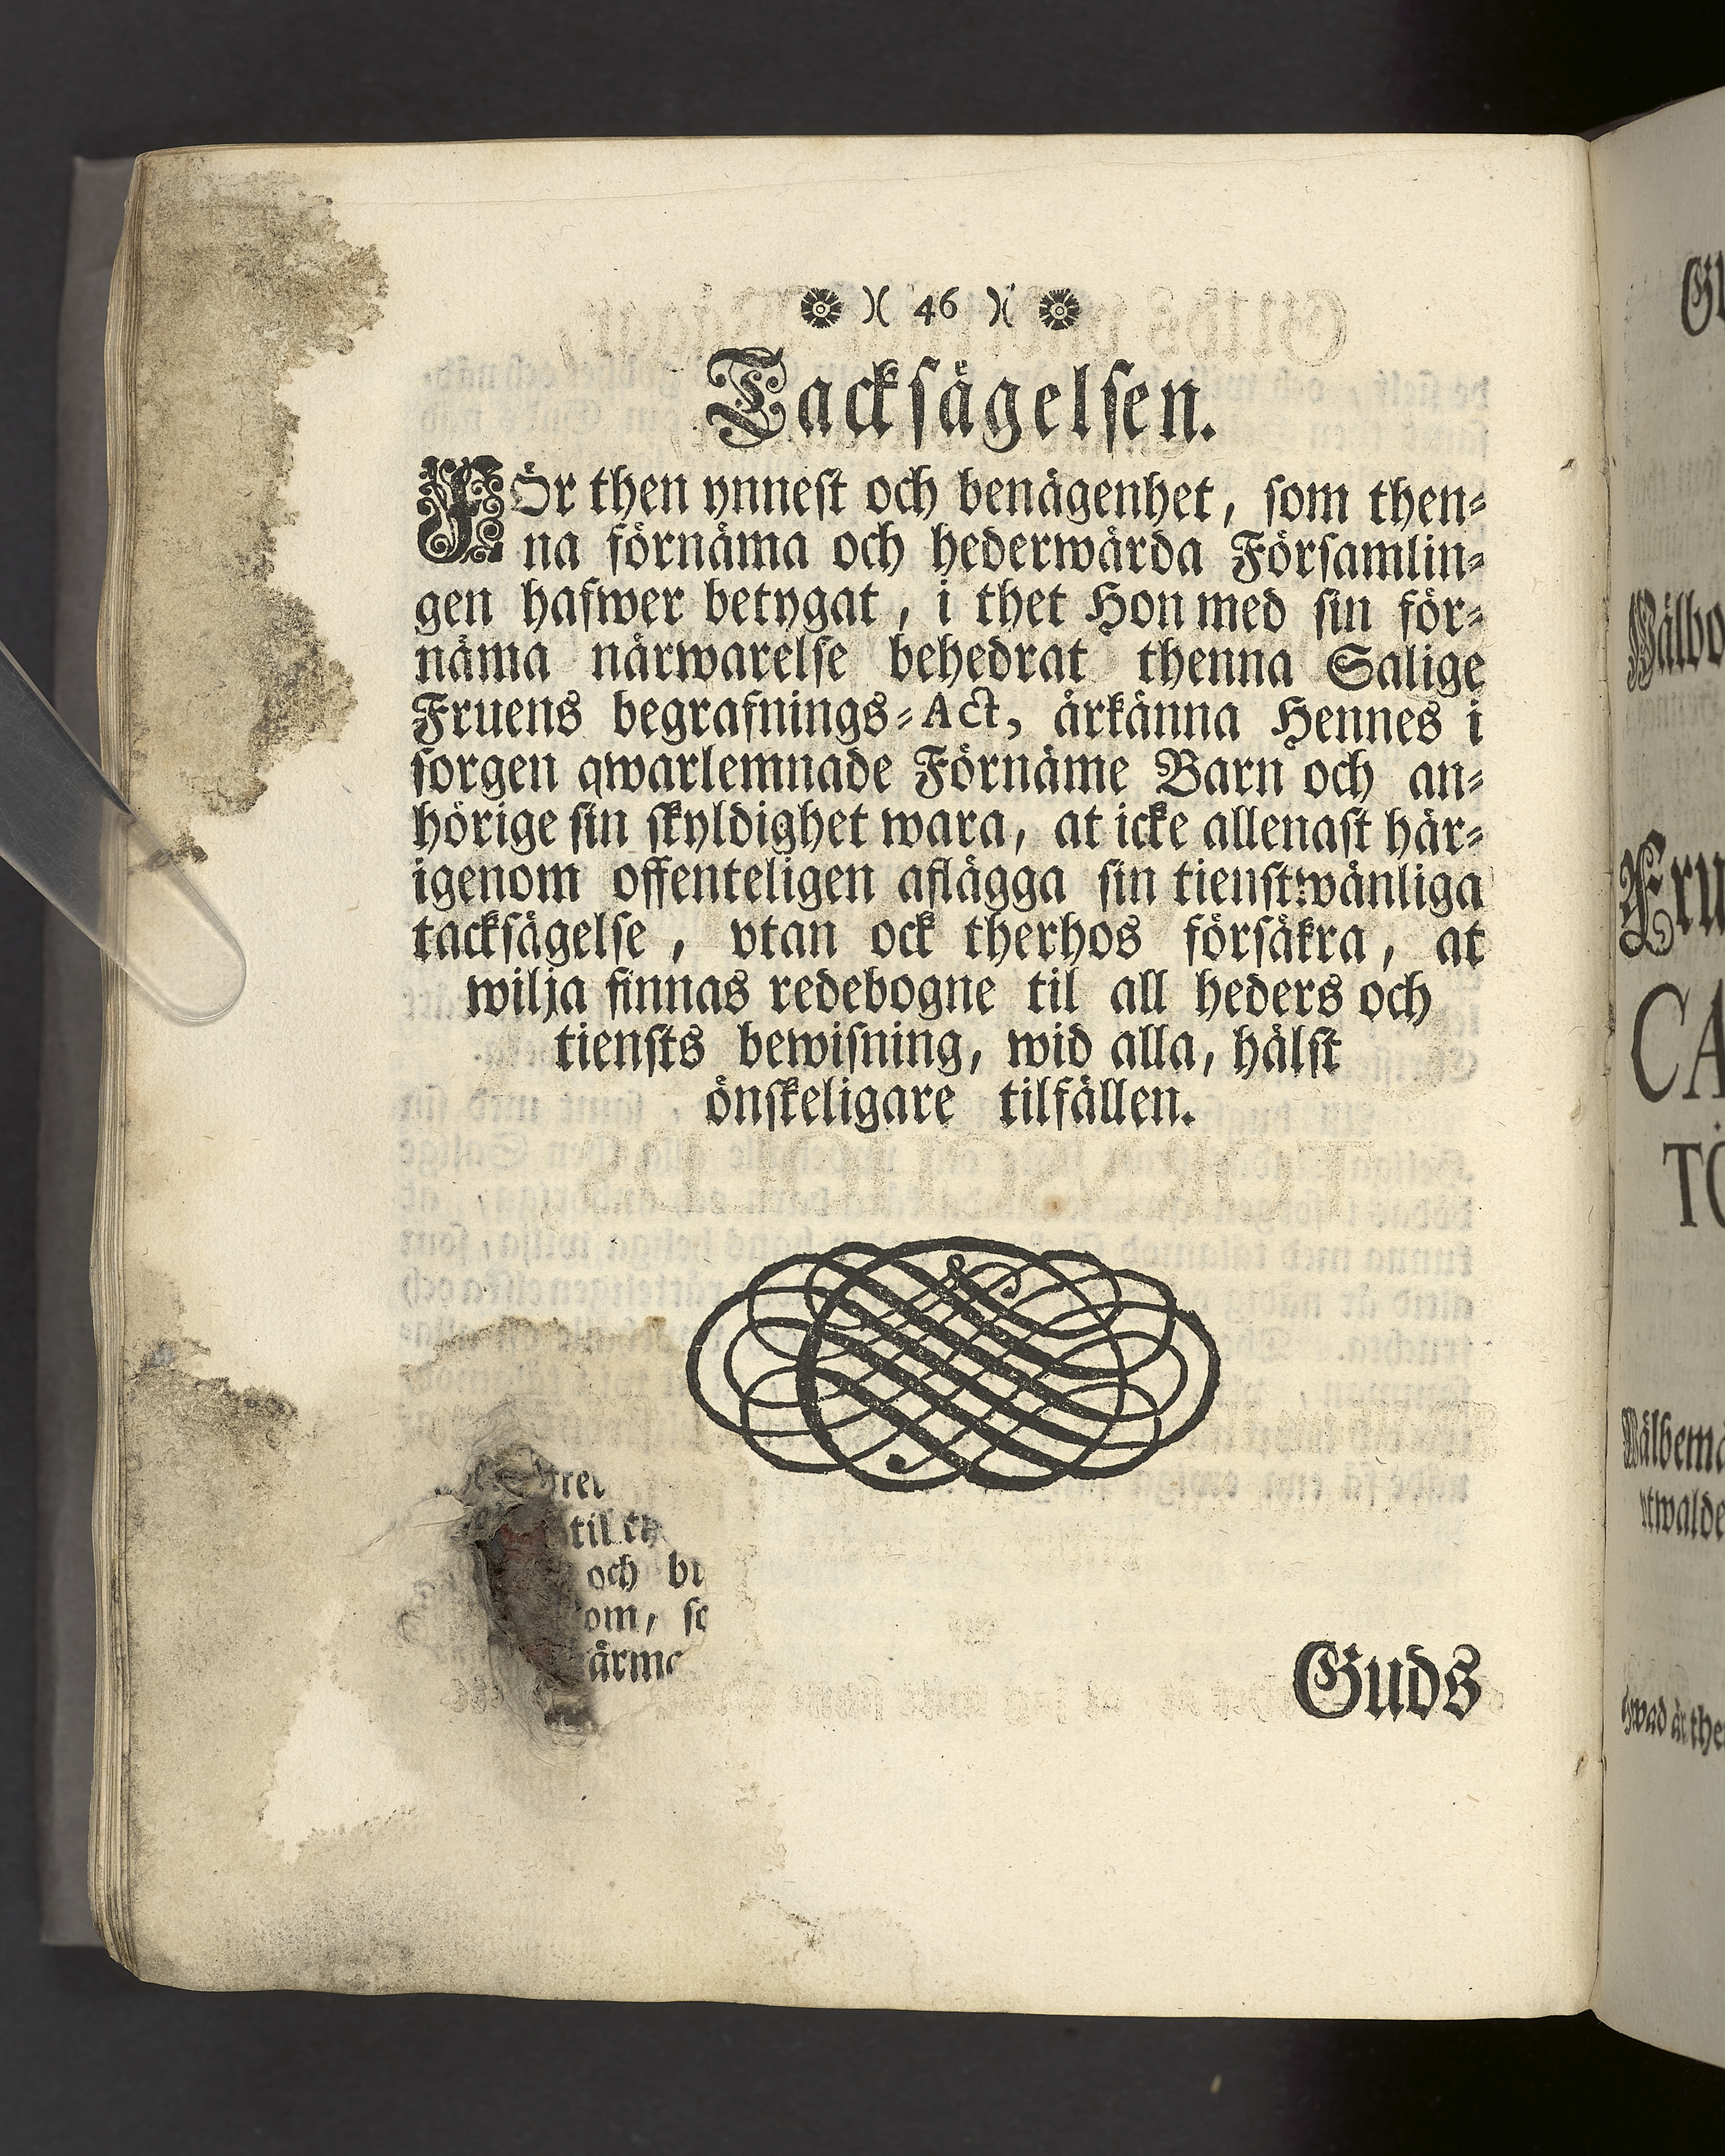 )( 46 )(
Tacksägelsen.
FÖr then ynnest och benägenhet, som then-
na förnäma och hederwärda Församlin-
gen hafwer betygat, i thet Hon med sin för-
näma närwarelse behedrat thenna Salige
Fruens begrafnings-Act, ärkänna Hennes i
sorgen qwarlemnade Förnäme Barn och an-
hörige sin skyldighet wara, at icke allenast här-
igenom offenteligen aflägga sin tienstwänliga
tacksägelse, vtan ock therhos försäkra, at
wilja finnas redebogne til all heders och
tiensts bewisning, wid alla, hälst
önskeligare tilfällen.
til
och
Guds